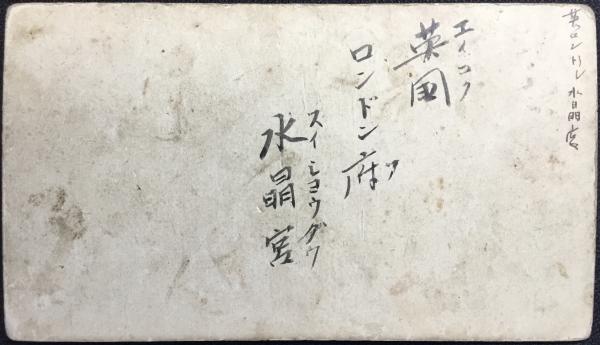 英ロンドン水晶宮
エイコク
英国
ロンドン府
フ
スイショウグウ
水晶宮